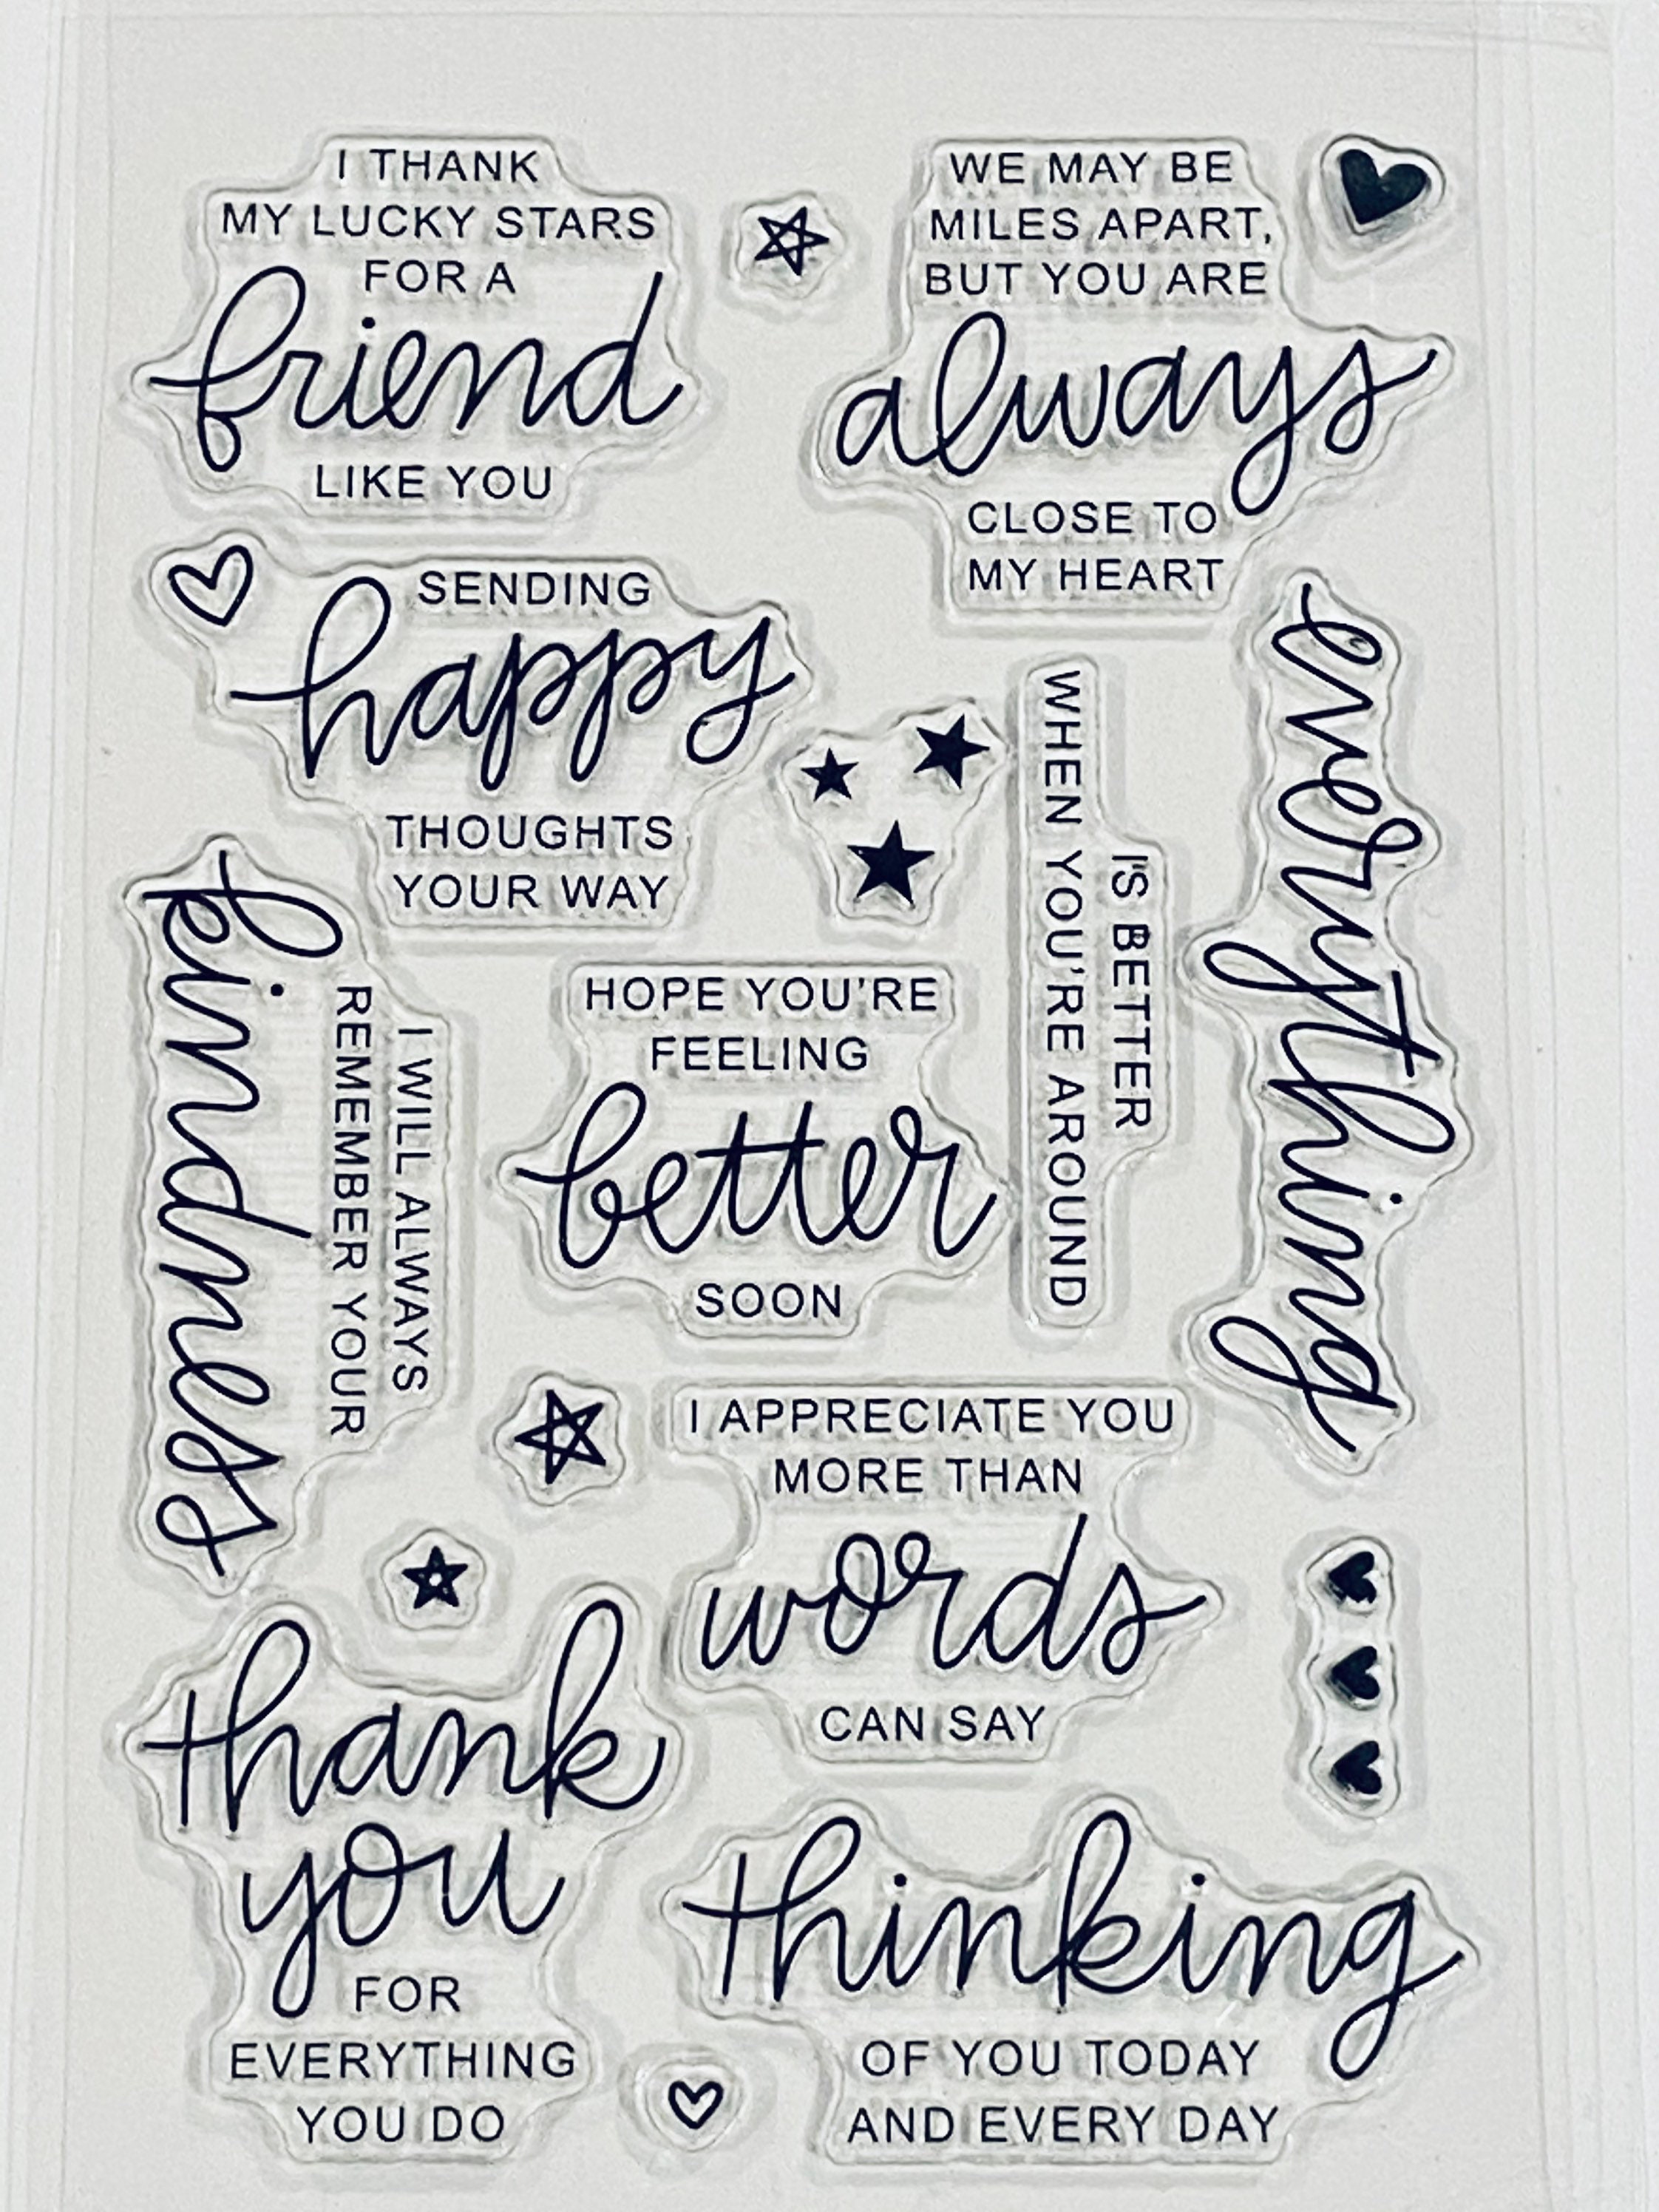 I THANK
MY LUCKY STARS
FOR A
friend
LIKE YOU
WE MAY BE
MILES APART,
BUT YOU ARE
always
CLOSE TO
MY HEART
SENDING
happy
THOUGHTS
YOUR WAY
everything
IS BETTER
WHEN YOU'RE AROUND
I WILL ALWAYS
REMEMBER YOUR
kindness
HOPE YOU'RE
FEELING
better
SOON
I APPRECIATE YOU
MORE THAN
words
CAN SAY
thank
you
FOR
EVERYTHING
YOU DO
thinking
OF YOU TODAY
AND EVERY DAY